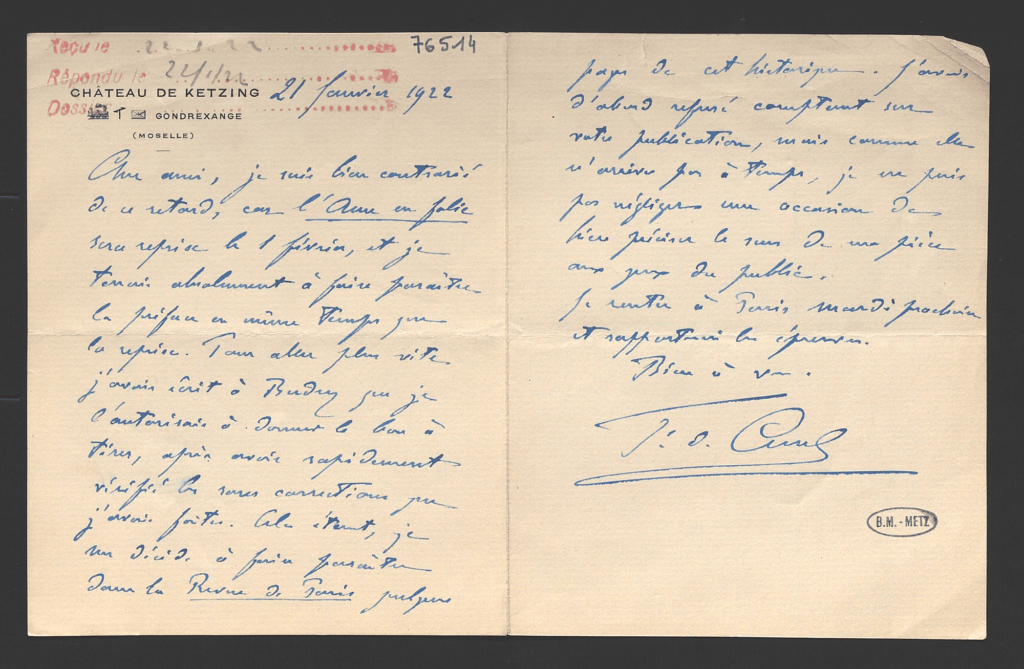 Reçu le
76514
Répondu le 24/1/22
CHÂTEAU DE KETZING
21 Janvier 1922
GONDREXANGE
(MOSELLE)
Cher ami, je suis bien contrarié
de ce retard, car l'Ame en folie
sera reprise le 1 février, et je
tenais absolument à faire paraître
la préface en même temps que
la reprise. Pour aller plus vite
j'avais écrit à que je
l'autorisais à donner le bon à
tirer, après avoir rapidement
vérifié les rares corrections que
j'avais faites. Cela étant, je
me décide à faire paraître
dans la Revue de Paris quelques
pages de cet historique. J'avais
d'abord refusé comptant sur
votre publication, mais comme elle
n'arrive pas à temps, je ne puis
pas négliger une occasion de
bien préciser le sens de ma pièce
aux yeux du public.
Je rentre à Paris mardi prochain
et rapporterai les épreuves.
Bien à vous.
F. d. Curel
B.M. - METZ